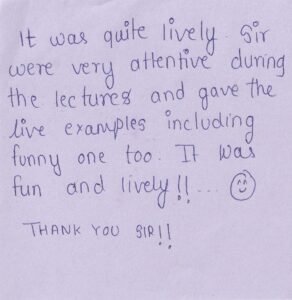 It was quite lively. Sir
were very attentive during
the lectures and gave the
live examples including
funny one too. It was
fun and lively!!...
THANK YOU SIR!!